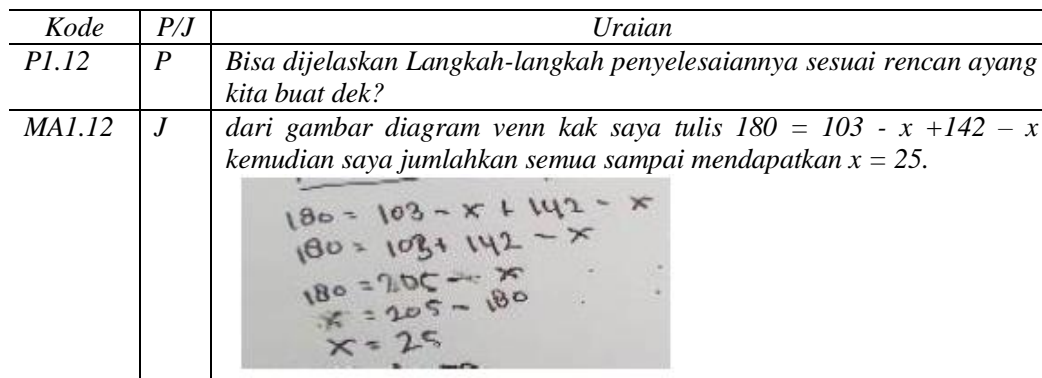 Kode P/J Uraian
P1.12 P Bisa dijelaskan Langkah-langkah penyelesaiannya sesuai rencan ayang
kita buat dek?
MA1.12 J dari gambar diagram venn kak saya tulis 180 = 103 - x +142 – x
kemudian saya jumlahkan semua sampai mendapatkan x = 25.
180 = 103 - x + 142 - x
180 = 103 + 142 - x
180 = 205 - x
x = 205 - 180
x = 25